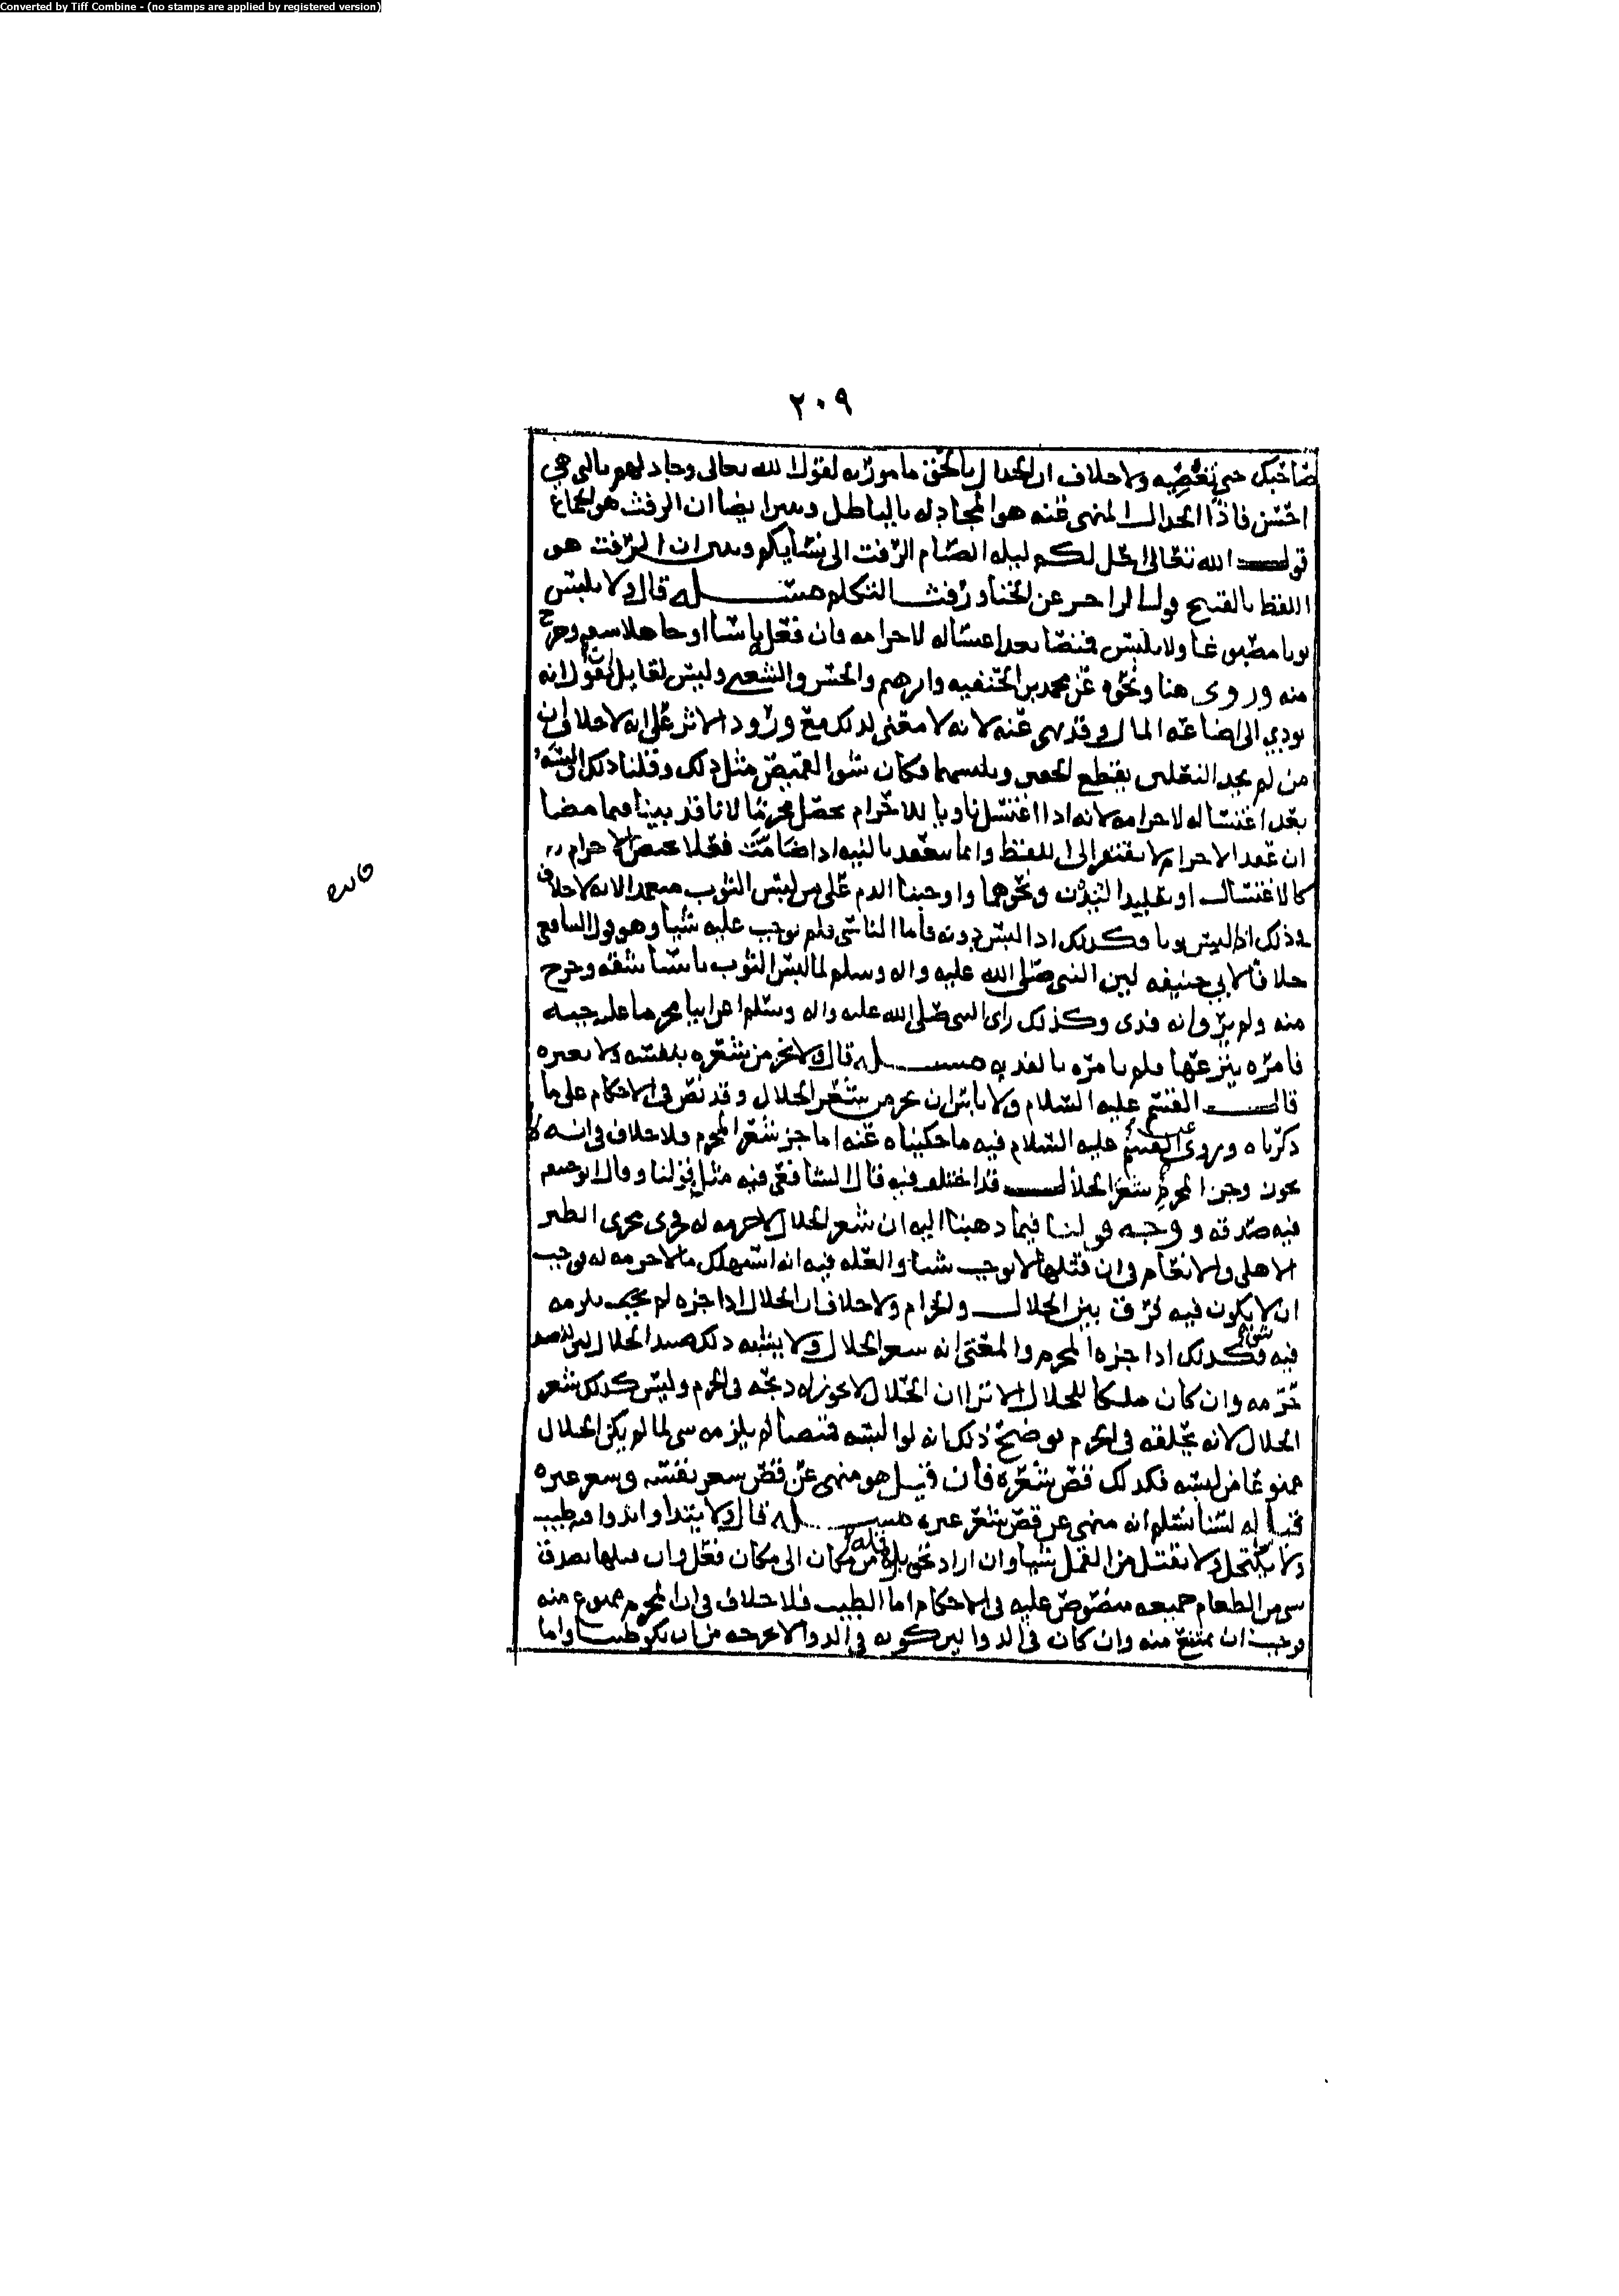 Converted by Tiff Combine - (no stamps are applied by registered version)
٢٠٩
صاحبك حتى تغضبه ولا خلاف ان الجدال بالحق مامور به لقول الله تعالى وجادلهم بالتي هي
احسن فاذا الجدال المنهي عنه هو المجادله بالباطل وتبين ايضا ان الرفث هو الجماع
قول الله تعالى احل لكم ليله الصيام الرفث الى نسايكم وتبين ان الرفث هو
اللفظ بالقبيح قول الراجز عن الخنا ورفث التكلم مسئله قال ولا يلبس
ثوبا مصبوغا ولا يلبس قميصا بعد اغتساله لاحرامه فان فعل ناسيا او جاهلا شقه وخرج
منه وروى هذا ونحوه عن محمد بن الحنفيه وابرهيم والحسن والشعبي وليس لقايل ان يقول انه
يودي الى اضاعه المال وقد نهي عنه لانه لا معنى لذلك مع ورود الاثر على انه لا خلاف ان
من لم يجد النعلين يقطع الخفين ويلبسهما فكان شق القميص مثل ذلك وقلنا ذلك ان لبسه
بعد اغتساله لاحرامه لانه اذا اغتسل ناويا للاحرام حصل محرما لانا قد بينا فيما مضا
ان عقد الاحرام لا يفتقر الى اللفظ وانما ينعقد بالنيه اذا ضامت فعلا الاحرام
كالاغتسال او تقليد البدن ونحوهما واوجبنا الدم على من لبس الثوب متعمدا لانه لا خلاف
في ذلك اذا لبس يوما وكذلك اذا لبس دونه فاما الناسي فلم نوجب عليه شيا وهو قول الشافعي
خلافا لابي حنيفه لان النبي صلى الله عليه واله وسلم لما لبس الثوب ناسيا شقه وخرج
منه ولم يرو انه فدى وكذلك راى النبي صلى الله عليه واله وسلم اعرابيا محرما عليه جبه
فامره ينزعها ولم يامره بالفديه مسئله قال ولا يجز من شعره بنفسه ولا بغيره
قال القسم عليه السلام ولا باس ان يجز من شعر الحلال وقد نص في الاحكام على ما
ذكرناه وروى عن القسم عليه السلام فيه ما حكيناه عنه اما جز شعر المحرم فلا خلاف في انه لا
يجوز وجز المحرم شعر الحلال قد اختلف فيه قال الشافعي فيه مثل قولنا وقال ابو حنيفه
فيه صدقه ووجه قولنا فيما ذهبنا اليه ان شعر الحلال لا حرمه له فجرى مجرى الطير
الاهلي والانعام في ان قتلها لا يوجب شيا والعله فيه انه استهلك ما لا حرمه له فوجب
ان لا يكون فيه فرق بين الحلال والحرام ولا خلاف ان الحلال اذا جزه لم يجب يلزمه
فيه شي فكذلك اذا جزه المحرم والمعنى انه شعر الحلال ولا يشبه ذلك صيد الحلال لان للصيد
حرمه وان كان ملكا للحلال الا ترا ان الحلال لا يجوز له ذبحه في الحرم وليس كذلك شعر
الحلال لانه يحلقه في الحرم يوضح ذلك انه لو البسه قميصا لم يلزمه شي لما لم يكن الحلال
ممنوعا من لبسه فكذلك قص شعره فان قيل هو منهي عن قص شعر نفسه وشعر غيره
قيل له لسنا نسلم انه منهي عن قص شعر غيره مسئله قال ولا يتداوا بدوا فيه طيب
ولا يكتحل ولا يقتل من القمل شيا وان اراد تحويل قمله من مكان الى مكان فعل وان قتلها تصدق
بشي من الطعام جميعه منصوص عليه في الاحكام اما الطيب فلا خلاف في ان المحرم ممنوع منه
فوجب ان يمتنع منه وان كان في الدوا لان كونه في الدوا لا يخرجه من ان يكون طيبا واما